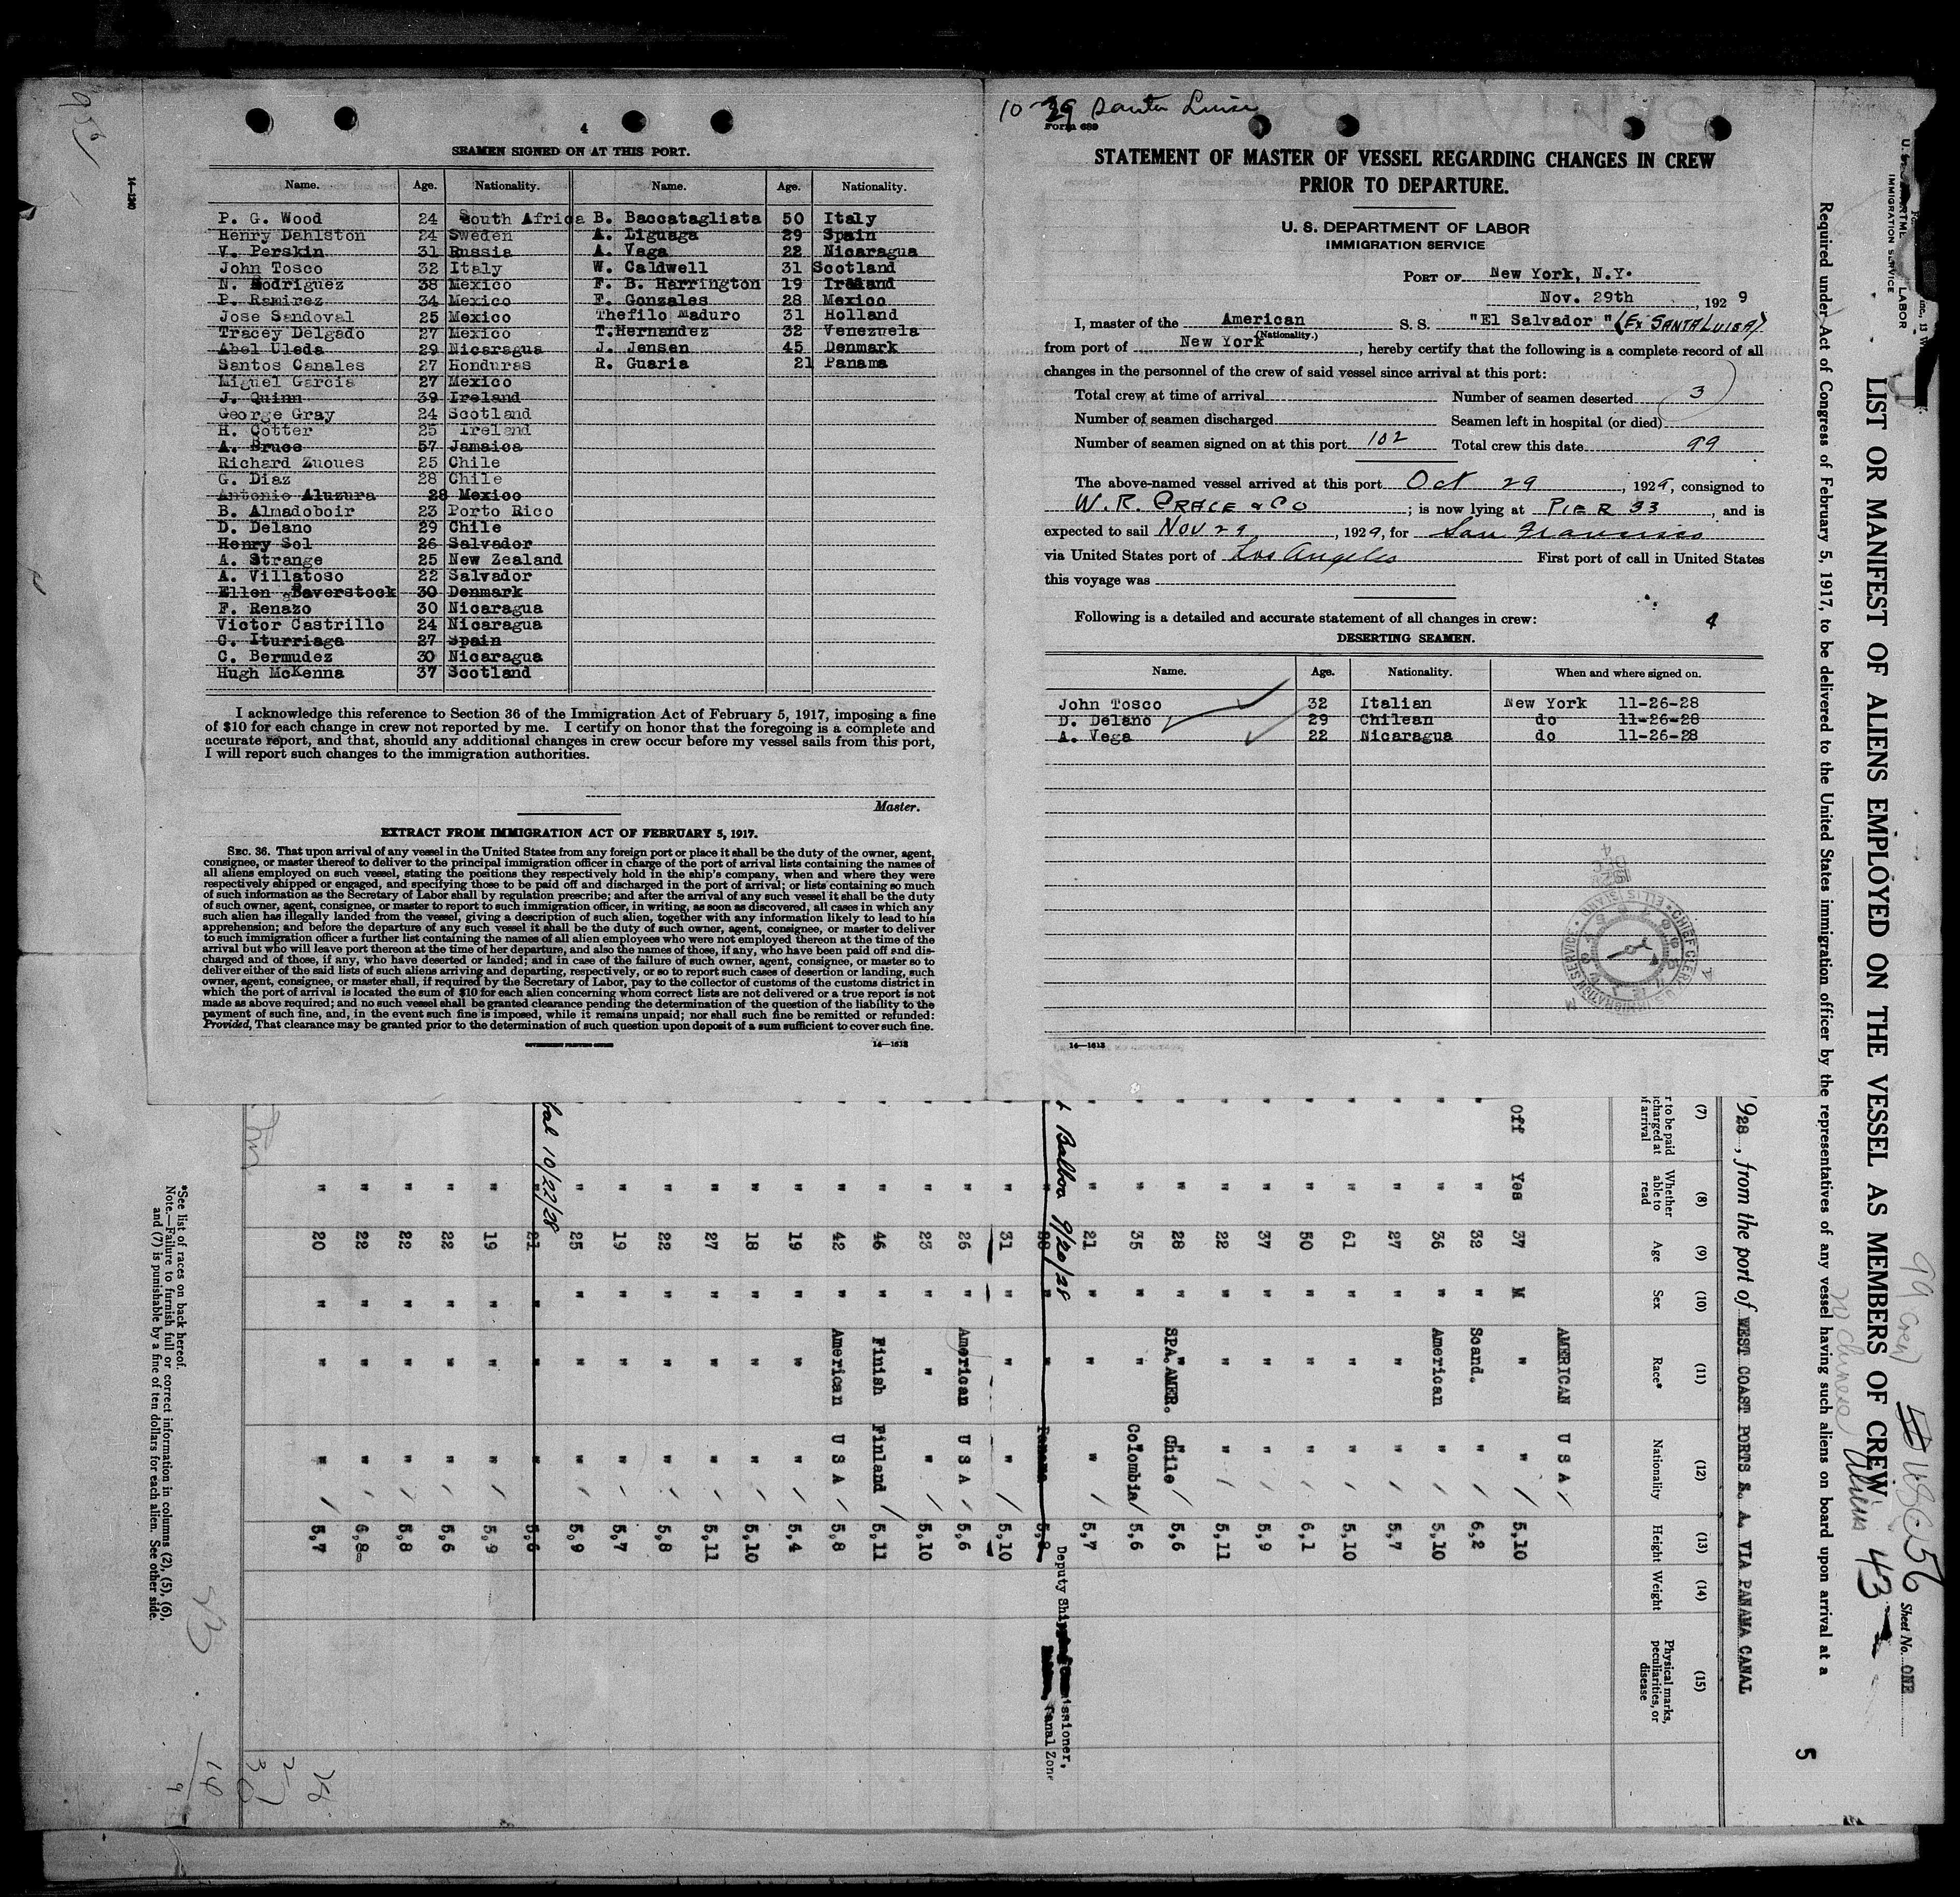 4
SEAMEN SIGNED ON AT THIS PORT.
Name. Age. Nationality. Name. Age. Nationality.
P. G. Wood 24 South Africa B. Baccatagliata 50 Italy
Henry Dahlston 24 Sweden A. Liguaga 29 Spain
V. Perskin 31 Russia A. Vega 22 Nicaragua
John Tosco 32 Italy W. Caldwell 31 Scotland
N. Rodriguez 38 Mexico F. B. Harrington 19 Ireland
P. Ramirez 34 Mexico F. Gonzales 28 Mexico
Jose Sandoval 25 Mexico Thefilo Maduro 31 Holland
Tracey Delgado 27 Mexico T. Hernandez 32 Venezuela
Abel Uleda 29 Nicaragua J. Jensen 45 Denmark
Santos Canales 27 Honduras R. Guaria 21 Panama
Miguel Garcia 27 Mexico
J. Quinn 39 Ireland
George Gray 24 Scotland
H. Cotter 25 Ireland
A. Bruce 57 Jamaica
Richard Zuoues 25 Chile
G. Diaz 28 Chile
Antonio Aluzura 28 Mexico
B. Almadoboir 23 Porto Rico
D. Delano 29 Chile
Henry Sol 26 Salvador
A. Strange 25 New Zealand
A. Villatoso 22 Salvador
Ellen Baverstock 30 Denmark
F. Renazo 30 Nicaragua
Victor Castrillo 24 Nicaragua
C. Iturriaga 27 Spain
C. Bermudez 30 Nicaragua
Hugh McKenna 37 Scotland
I acknowledge this reference to Section 36 of the Immigration Act of February 5, 1917, imposing a fine
of $10 for each change in crew not reported by me. I certify on honor that the foregoing is a complete and
accurate report, and that, should any additional changes in crew occur before my vessel sails from this port,
I will report such changes to the immigration authorities.
Master.
EXTRACT FROM IMMIGRATION ACT OF FEBRUARY 5, 1917.
SEC. 36. That upon arrival of any vessel in the United States from any foreign port or place it shall be the duty of the owner, agent,
consignee, or master thereof to deliver to the principal immigration officer in charge of the port of arrival lists containing the names of
all aliens employed on such vessel, stating the positions they respectively hold in the ship's company, when and where they were
respectively shipped or engaged, and specifying those to be paid off and discharged in the port of arrival; or lists containing so much
of such information as the Secretary of Labor shall by regulation prescribe; and after the arrival of any such vessel it shall be the duty
of such owner, agent, consignee, or master to report to such immigration officer, in writing, as soon as discovered, all cases in which any
such alien has illegally landed from the vessel, giving a description of such alien, together with any information likely to lead to his
apprehension; and before the departure of any such vessel it shall be the duty of such owner, agent, consignee, or master to deliver
to such immigration officer a further list containing the names of all alien employees who were not employed thereon at the time of the
arrival but who will leave port thereon at the time of her departure, and also the names of those, if any, who have been paid off and dis-
charged and of those, if any, who have deserted or landed; and in case of the failure of such owner, agent, consignee, or master so to
deliver either of the said lists of such aliens arriving and departing, respectively, or so to report such cases of desertion or landing, such
owner, agent, consignee, or master shall, if required by the Secretary of Labor, pay to the collector of customs of the customs district in
which the port of arrival is located the sum of $10 for each alien concerning whom correct lists are not delivered or a true report is not
made as above required; and no such vessel shall be granted clearance pending the determination of the question of the liability to the
payment of such fine, and, in the event such fine is imposed, while it remains unpaid; nor shall such fine be remitted or refunded:
Provided, That clearance may be granted prior to the determination of such question upon deposit of a sum sufficient to cover such fine.
GOVERNMENT PRINTING OFFICE 14—1613
10-29 Santa Luisa
Form 689
STATEMENT OF MASTER OF VESSEL REGARDING CHANGES IN CREW
PRIOR TO DEPARTURE.
U. S. DEPARTMENT OF LABOR
IMMIGRATION SERVICE
PORT OF New York, N.Y.
Nov. 29th, 1929
I, master of the American S. S. "El Salvador" (EX SANTA LUISA)
(Nationality.)
from port of New York, hereby certify that the following is a complete record of all
changes in the personnel of the crew of said vessel since arrival at this port:
Total crew at time of arrival Number of seamen deserted 3
Number of seamen discharged Seamen left in hospital (or died)
Number of seamen signed on at this port 102 Total crew this date 99
The above-named vessel arrived at this port Oct 29, 1929, consigned to
W. R. GRACE & CO; is now lying at PIER 33, and is
expected to sail NOV 29, 1929, for San Francisco
via United States port of Los Angeles First port of call in United States
this voyage was
Following is a detailed and accurate statement of all changes in crew: 4
DESERTING SEAMEN.
Name. Age. Nationality. When and where signed on.
John Tosco 32 Italian New York 11-26-28
D. Delano 29 Chilean do 11-26-28
A. Vega 22 Nicaragua do 11-26-28
CHIEF CLERK U.S. IMMIGRATION SERVICE ELLIS ISLAND
14—1613
14—1240
U. S. DEPARTMENT LABOR
IMMIGRATION SERVICE
Sheet No. ONE
LIST OR MANIFEST OF ALIENS EMPLOYED ON THE VESSEL AS MEMBERS OF CREW
99 Crew
USC 56
Aliens 43
Required under Act of Congress of February 5, 1917, to be delivered to the United States immigration officer by the representatives of any vessel having such aliens on board upon arrival at a
5
1928, from the port of WEST COAST PORTS S. A. VIA PANAMA CANAL
(7) (8) (9) (10) (11) (12) (13) (14) (15)
r to be paid charged at of arrival Whether able to read Age Sex Race* Nationality Height Weight Physical marks, peculiarities, or disease
AMERICAN U S A
Off Yes 37 M " " 5,10
" " 32 " Scand. " 6,2
" " 36 " American " 5,10
" " 27 " " " 5,7
" " 61 " " " 5,10
" " 50 " " " 6,1
" " 37 " " " 5,9
" " 22 " " " 5,11
" " 28 " SPA. AMER. Chile 5,6
" " 35 " " Colombia 5,6
" " 21 " " " 5,7
Balboa 9/20/28
Deputy Shipping Commissioner,
Balboa, Canal Zone
" " 31 " " " 5,10
" " 26 " American U S A 5,6
" " 23 " " " 5,10
" " 46 " Finish Finland 5,11
" " 42 " American U S A 5,8
" " 19 " " " 5,4
" " 18 " " " 5,10
" " 27 " " " 5,11
" " 22 " " " 5,8
" " 19 " " " 5,7
" " 25 " " " 5,9
" " 21 " " " 5,6
10/22/28
" " 19 " " " 5,9
" " 22 " " " 5,6
" " 22 " " " 5,8
" " 22 " " " 6,8
" " 20 " " " 5,7
*See list of races on back hereof.
Note.—Failure to furnish full or correct information in columns (2), (5), (6),
and (7) is punishable by a fine of ten dollars for each alien. See other side.